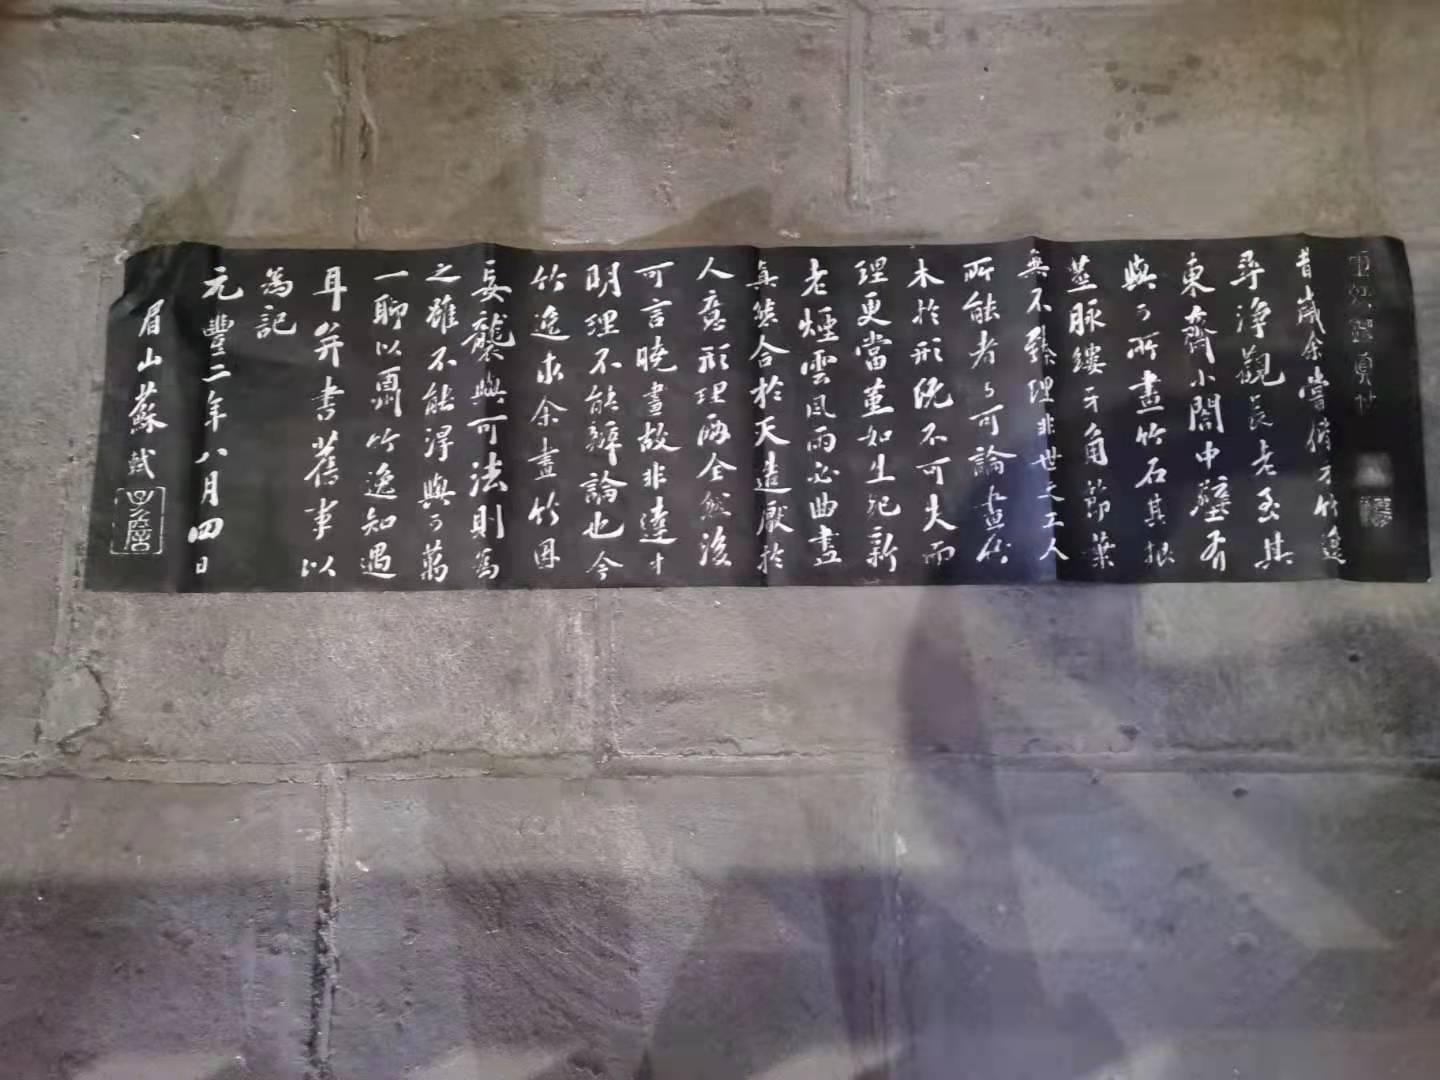 昔歲余嘗偕方竹逸
尋淨觀長老至其
東齋小閣中壁有
與可所畫竹石其根
莖脉縷牙角節葉
無不臻理非世之工人
所能者與可論畫竹
木於形既不可失而
理更當董如生死新
老煙雲風雨必曲盡
真態合於天造厭於
人意形理兩全然後
可言曉畫故非達才
明理不能辨論也今
竹逸求余畫竹因
妄襲與可法則為
之雖不能得與可萬
一聊以爾竹逸知遇
耳并書舊事以
為記
元豐二年八月四日
眉山蘇軾